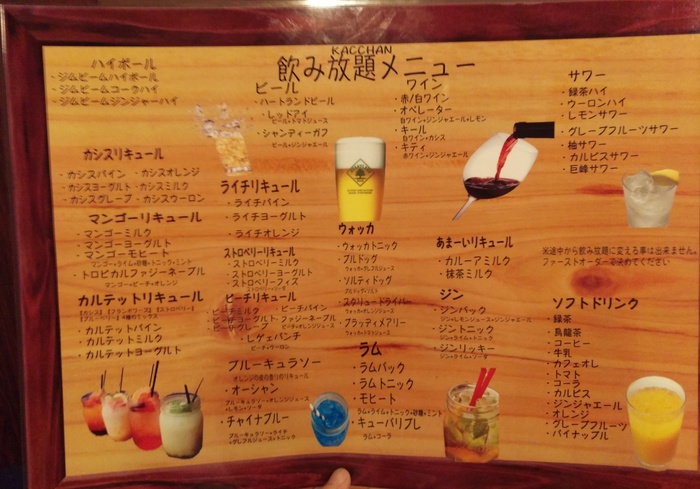 KACCHAN
飲み放題メニュー
ハイボール
・ジムビームハイボール
・ジムビームコークハイ
・ジムビームジンジャーハイ
カシスリキュール
・カシスパイン ・カシスオレンジ
・カシスヨーグルト ・カシスミルク
・カシスグレープ ・カシスウーロン
マンゴーリキュール
・マンゴーミルク
・マンゴーヨーグルト
・マンゴーモヒート
マンゴー+ライム+砂糖+トニック+ミント
・トロピカルファジーネーブル
マンゴー+ピーチ+オレンジ
カルテットリキュール
・カルテットパイン
・カルテットミルク
・カルテットヨーグルト
ビール
・ハートランドビール
・レッドアイ
ビール+トマトジュース
・シャンディーガフ
ビール+ジンジャエール
ライチリキュール
・ライチパイン
・ライチヨーグルト
・ライチオレンジ
ストロベリーリキュール
・ストロベリーミルク
・ストロベリーヨーグルト
・ストロベリーフィズ
ピーチリキュール
・ピーチミルク ・ピーチパイン
・ピーチヨーグルト ・ファジーネーブル
・ピーチグレープ ピーチ+オレンジジュース
・レゲエパンチ
ピーチ+ウーロン
ブルーキュラソー
オレンジの皮の香りのリキュール
・オーシャン
ブルーキュラソー+オレンジジュース
+レモン+ソーダ
・チャイナブルー
ブルーキュラソー+ライチ
+グレフルジュース+トニック
ワイン
・赤/白ワイン
・オペレーター
白ワイン+ジンジャエール+レモン
・キール
白ワイン+カシス
・キティ
赤ワイン+ジンジャエール
ウォッカ
・ウォッカトニック
・ブルドッグ
ウォッカ+グレフルジュース
・ソルティドッグ
・スクリュードライバー
ウォッカ+オレンジジュース
・ブラッティメアリー
ウォッカ+トマトジュース
ラム
・ラムバック
・ラムトニック
・モヒート
ラム+ライム+トニック+砂糖+ミント
・キューバリブレ
ラム+コーラ
あまーいリキュール
・カルーアミルク
・抹茶ミルク
ジン
・ジンバック
ジン+レモンジュース+ジンジャエール
・ジントニック
ジン+ライム+トニック
・ジンリッキー
ジン+ライム+ソーダ
サワー
・緑茶ハイ
・ウーロンハイ
・レモンサワー
・グレープフルーツサワー
・柚サワー
・カルピスサワー
・巨峰サワー
※途中から飲み放題に変える事は出来ません。
ファーストオーダーで決めてください
ソフトドリンク
・緑茶
・烏龍茶
・コーヒー
・牛乳
・カフェオレ
・トマト
・コーラ
・カルピス
・ジンジャエール
・オレンジ
・グレープフルーツ
・パイナップル